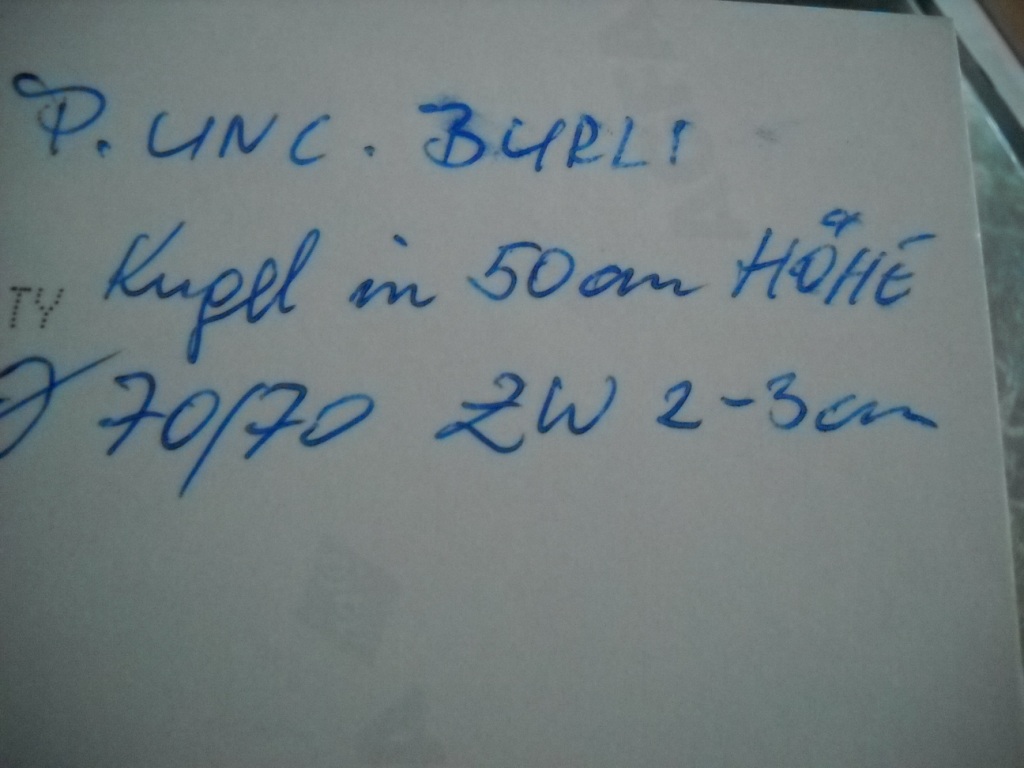 P. UNC. BURLI
Kugel in 50cm HÖHE
TY
70/70 ZW 2-3cm